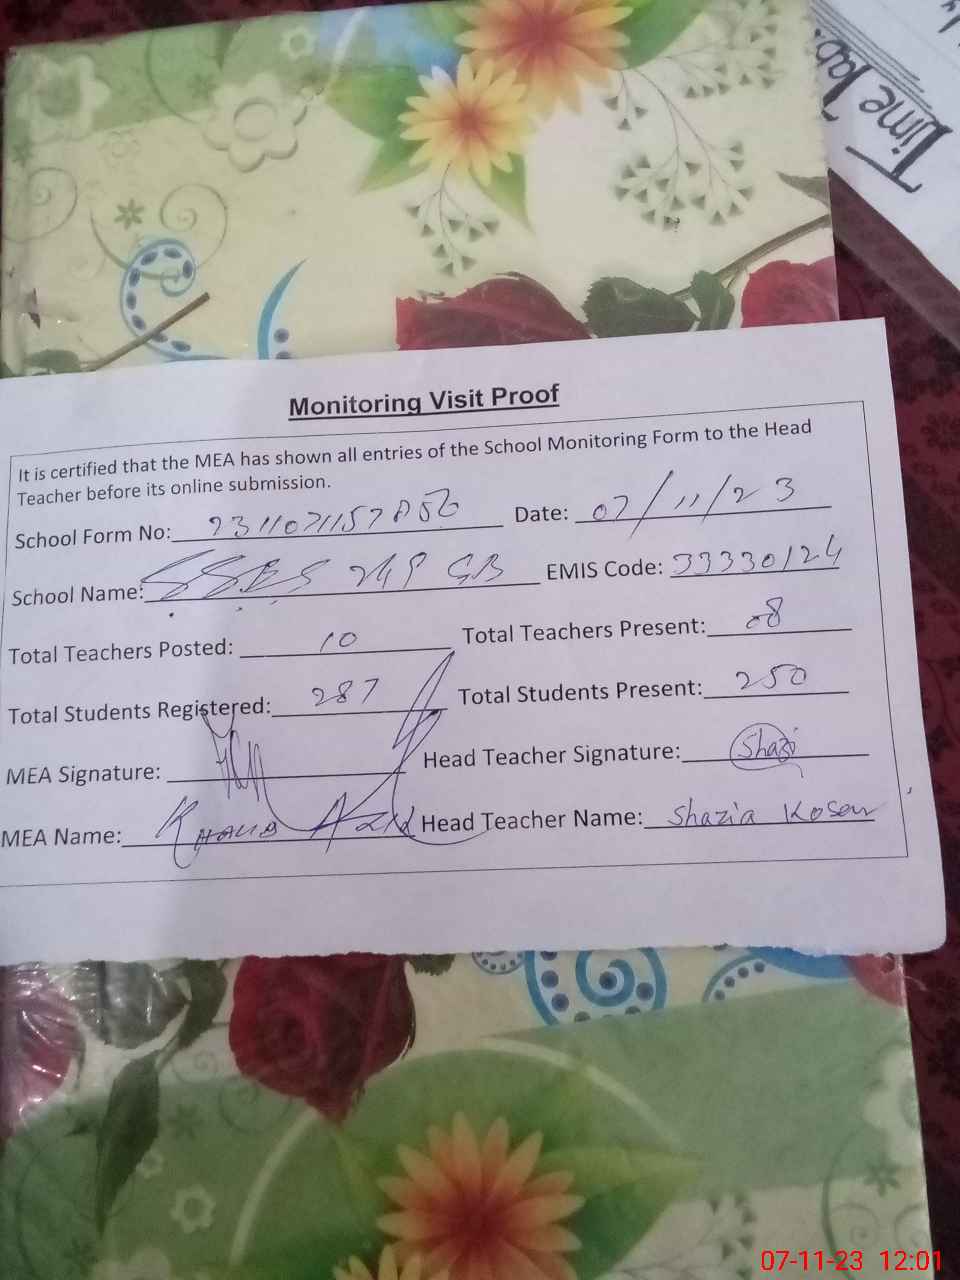 Time Tab
Monitoring Visit Proof
It is certified that the MEA has shown all entries of the School Monitoring Form to the Head
Teacher before its online submission.
School Form No: 231107115 Date: 07/11/23
School Name: 249 GB EMIS Code: 33330124
Total Teachers Posted: 10 Total Teachers Present: 08
Total Students Registered: 287 Total Students Present: 250
MEA Signature: Head Teacher Signature: Shazi
MEA Name: Head Teacher Name: Shazia Koser
07-11-23 12:01